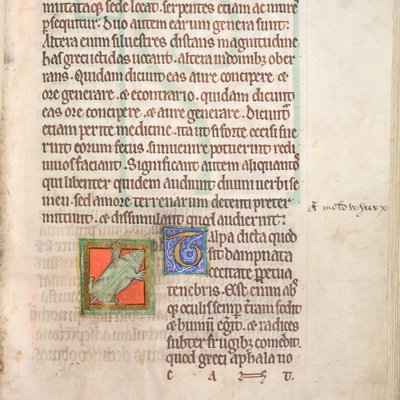 mutataq; sede locat. serpentes etiam ac mures
p̄sequitur. Duo autem earum genera sunt.
Altera enim siluestres distans magnitudine
has greci ictidas uocant. altera in domibus ober
rans. Quidam dicunt eas aure concipere. et
ore generare. e contrario. quidam dicunt
eas ore concipere. et aure generare. Dicunt
etiam perite medicine. ita ut si forte occisi fue
rint eorum fetus. si inuenire potuerint redi
uiuos faciant. Significant autem aliquantos
qui libenter quidem audiunt diuini uerbi se
men. sed amore terrenarum detenti preter
mittunt. et dissimulant quod audierint.
Talpa dicta quod
sit dampnata
cecitate perpetua
tenebris. Est enim abs
que oculis semper terram fodit
et humum egerit. et radices
subter frugibus comedit.
quod greci aphala uo
C A U T.